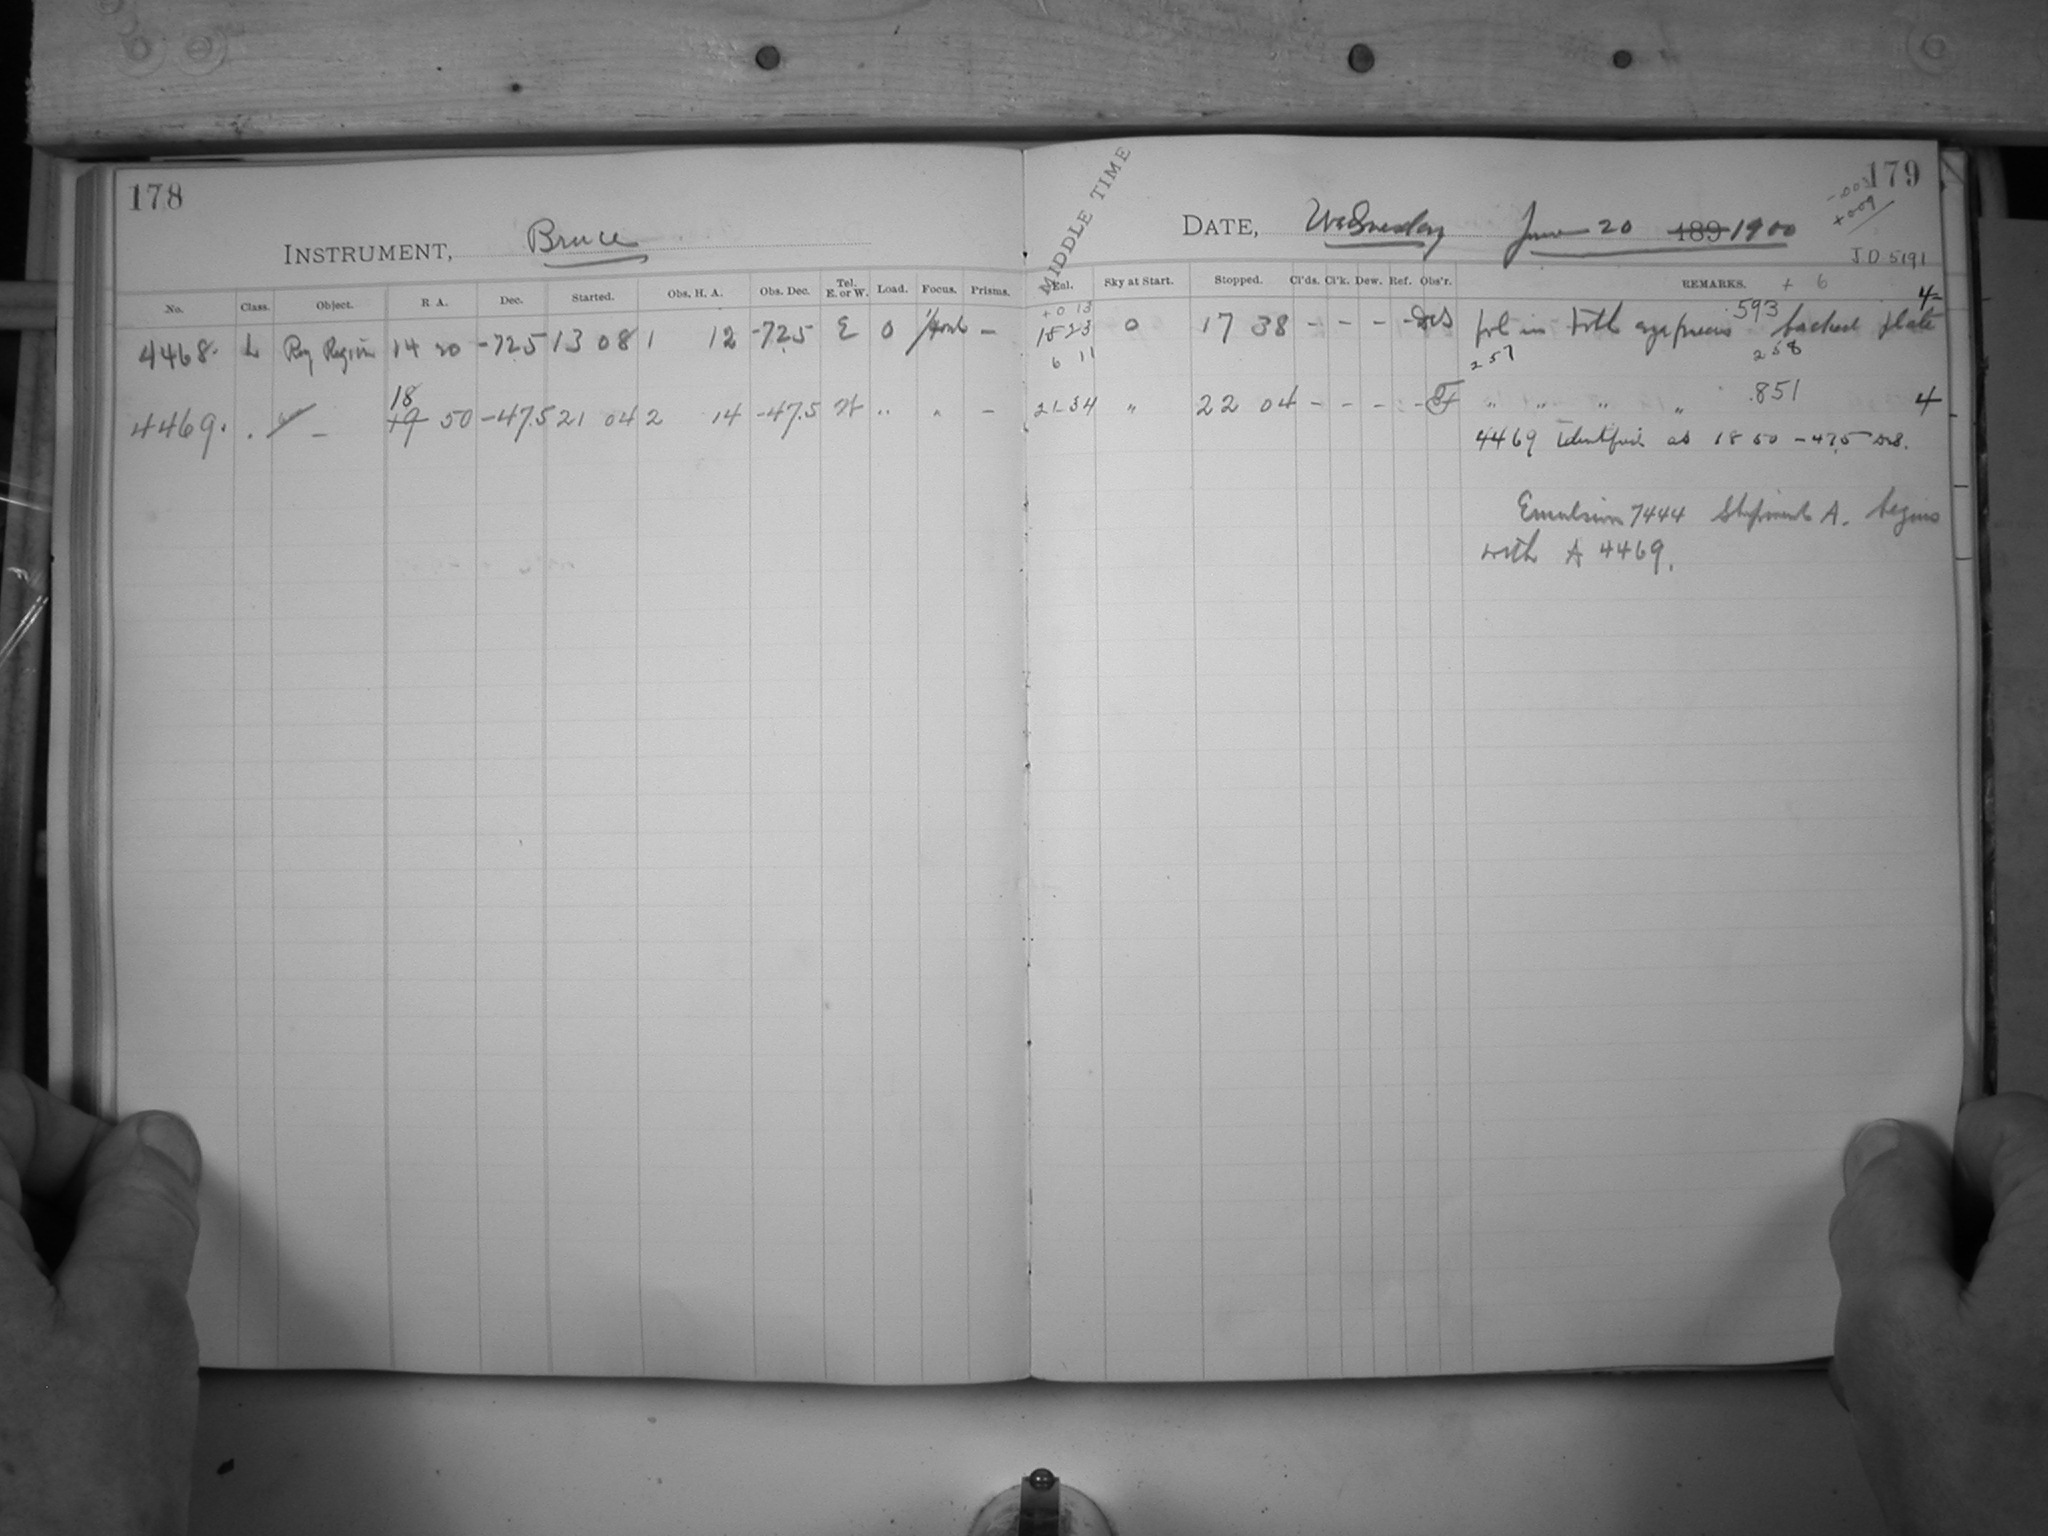 178
INSTRUMENT, Bruce
No. Class. Object. R A. Dec. Started. Obs. H. A. Obs. Dec. Tel. E. or W. Load. Focus. Prisms.
4468. L Reg Region 14 20 -72.5 13 08 1 12 -72.5 E 0 –
18
4469. . – 19 50 -47.5 21 04 2 14 -47.5 W " " –
MIDDLE TIME
179
-.003
+009
DATE, Wednesday June 20 189 1900
J.D. 5191
Enl. Sky at Start. Stopped. Cl'ds. Cl'k. Dew. Ref. Obs'r. REMARKS. + 6
+ 0 13 .593 4
15 23 0 17 38 – – – – in with backed plate
6 11 257 258
.851
21 34 " 22 04 – – – – " " " " 4
4469 identified as 18 50 -47.5
Emulsion 7444 Shipment A. begins
with A 4469.